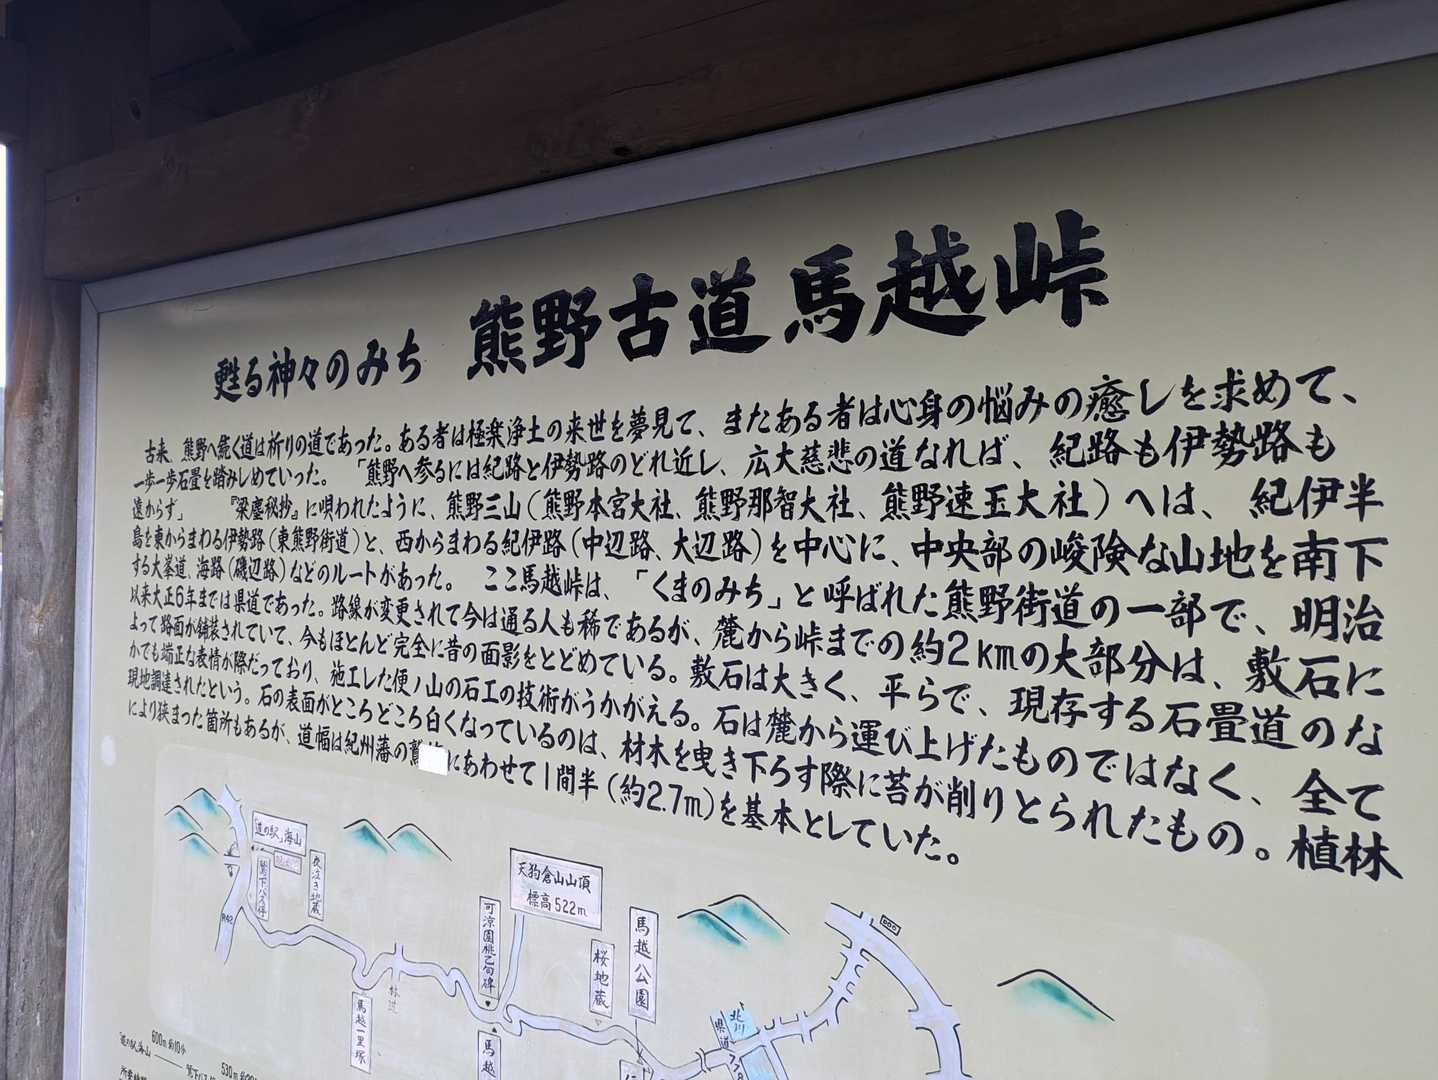 甦る神々のみち 熊野古道馬越峠
古来、熊野へ続く道は祈りの道であった。ある者は極楽浄土の来世を夢見て、またある者は心身の悩みの癒しを求めて、
一歩一歩石畳を踏みしめていった。 「熊野へ参るには紀路と伊勢路のどれ近し、広大慈悲の道なれば、紀路も伊勢路も
遠からず」 『梁塵秘抄』に唄われたように、熊野三山(熊野本宮大社、熊野那智大社、熊野速玉大社)へは、紀伊半
島を東からまわる伊勢路(東熊野街道)と、西からまわる紀伊路(中辺路、大辺路)を中心に、中央部の峻険な山地を南下
する大峯道、海路(磯辺路)などのルートがあった。 ここ馬越峠は、「くまのみち」と呼ばれた熊野街道の一部で、明治
以来大正6年までは県道であった。路線が変更されて今は通る人も稀であるが、麓から峠までの約2kmの大部分は、敷石に
よって路面が舗装されていて、今もほとんど完全に昔の面影をとどめている。敷石は大きく、平らで、現存する石畳道のな
かでも端正な表情が際だっており、施工した便ノ山の石工の技術がうかがえる。石は麓から運び上げたものではなく、全て
現地調達されたという。石の表面がところどころ白くなっているのは、材木を曳き下ろす際に苔が削りとられたもの。植林
により狭まった箇所もあるが、道幅は紀州藩の にあわせて1間半(約2.7m)を基本としていた。
「道の駅」海山
鷲下バス停
夜泣き地蔵
R42
林道
馬越一里塚
可涼園桃乙句碑
天狗倉山山頂
標高522m
馬越
桜地蔵
馬越公園
北川
県道
778
「道の駅」海山
600m 約10分
530m